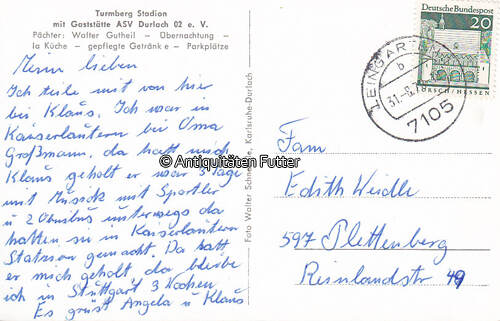 Turmberg Stadion
mit Gaststätte ASV Durlach 02 e. V.
Pächter: Walter Gutheil – Übernachtung –
la Küche – gepflegte Getränke – Parkplätze
Meine lieben
Ich teile mit von hier
bei Klaus. Ich war in
Kaiserslautern bei Oma
Großmann, da hatt mich
Klaus geholt er war 3 Tage
mit Mussick mit Sportler
u 2 Omnibus unterwegs da
hatten sie in Kaiserslautern
Statsion gemacht. Da hatt
er mich geholt, da bleibe
ich in Stuttgart 3 Wochen
Es grüst Angela u Klaus
Foto Walter Schneider, Karlsruhe-Durlach
© Antiquitäten Futter
Deutsche Bundespost
20
LORSCH/HESSEN
LEINGARTEN
b
31.-8.
7105
Fam
Edith Weidle
597 Plettenberg
Reinlandstr 49